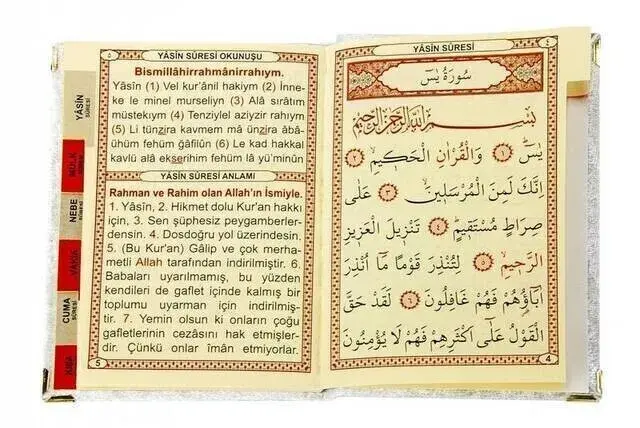 ٥
YÂSİN SÛRESİ OKUNUŞU
Bismillâhirrahmânirrahıym.
Yâsîn (1) Vel kur'ânil hakiym (2) İnne-
ke le minel murseliyn (3) Alâ sırâtım
müstekıym (4) Tenziylel aziyzir rahıym
(5) Li tünzira kavmem mâ ünzira âbâ-
ühüm fehüm ğâfilûn (6) Le kad hakkal
kavlü alâ ekserihim fehüm lâ yü'minûn
YÂSİN SÛRESİ ANLAMI
Rahman ve Rahim olan Allah'ın İsmiyle.
1. Yâsîn, 2. Hikmet dolu Kur'an hakkı
için, 3. Sen şüphesiz peygamberler-
densin. 4. Dosdoğru yol üzerindesin.
5. (Bu Kur'an) Gâlip ve çok merha-
metli Allah tarafından indirilmiştir. 6.
Babaları uyarılmamış, bu yüzden
kendileri de gaflet içinde kalmış bir
toplumu uyarman için indirilmiş-
tir. 7. Yemin olsun ki onların çoğu
gafletlerinin cezasını hak etmişler-
dir. Çünkü onlar îmân etmiyorlar.
5
YÂSİN
SÛRESİ
MÜLK
NEBE
VAKIA
CUMA
SÛRESİ
٤
YÂSİN SÛRESİ
سُورَةُ يٰسٓ
بِسْمِ اللّٰهِ الرَّحْمٰنِ الرَّحٖيمِ
يٰسٓ ﴿١﴾ وَالْقُرْاٰنِ الْحَكٖيمِ ﴿٢﴾
اِنَّكَ لَمِنَ الْمُرْسَلٖينَ ﴿٣﴾ عَلٰى
صِرَاطٍ مُسْتَقٖيمٍ ﴿٤﴾ تَنْزٖيلَ الْعَزٖيزِ
الرَّحٖيمِ ﴿٥﴾ لِتُنْذِرَ قَوْمًا مَٓا اُنْذِرَ
اٰبَٓاؤُ۬هُمْ فَهُمْ غَافِلُونَ ﴿٦﴾ لَقَدْ حَقَّ
الْقَوْلُ عَلٰٓى اَكْثَرِهِمْ فَهُمْ لَا يُؤْمِنُونَ
4